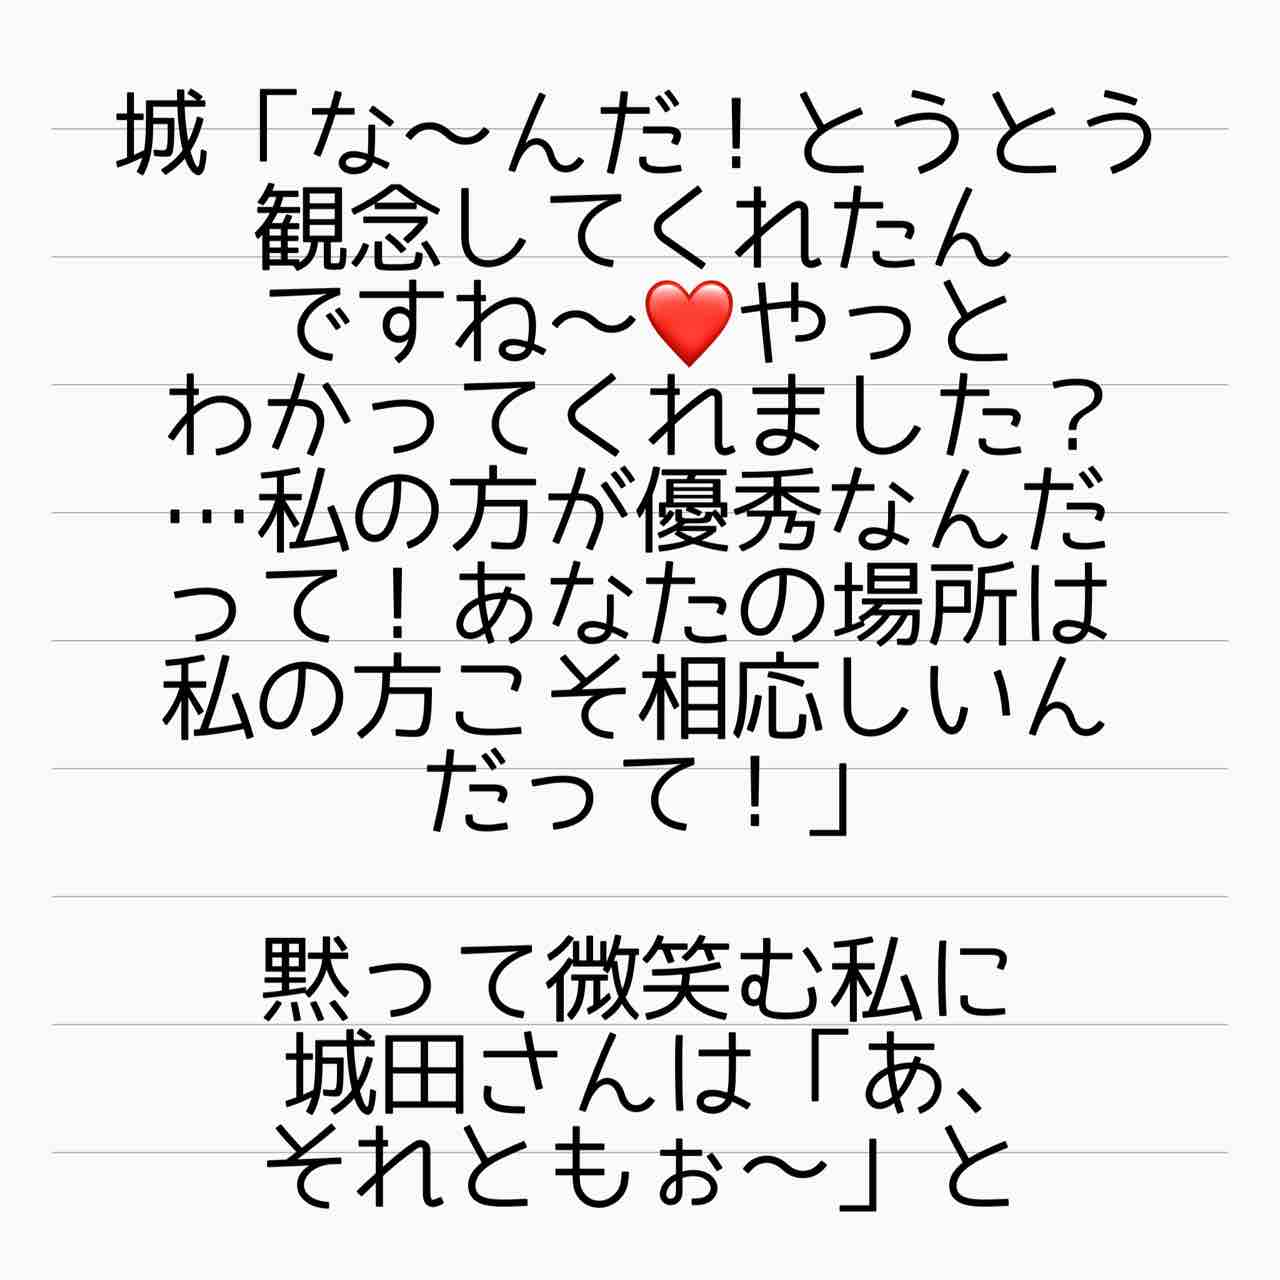 城「な〜んだ！とうとう
観念してくれたん
ですね〜❤️やっと
わかってくれました？
…私の方が優秀なんだ
って！あなたの場所は
私の方こそ相応しいん
だって！」
黙って微笑む私に
城田さんは「あ、
それともぉ〜」と